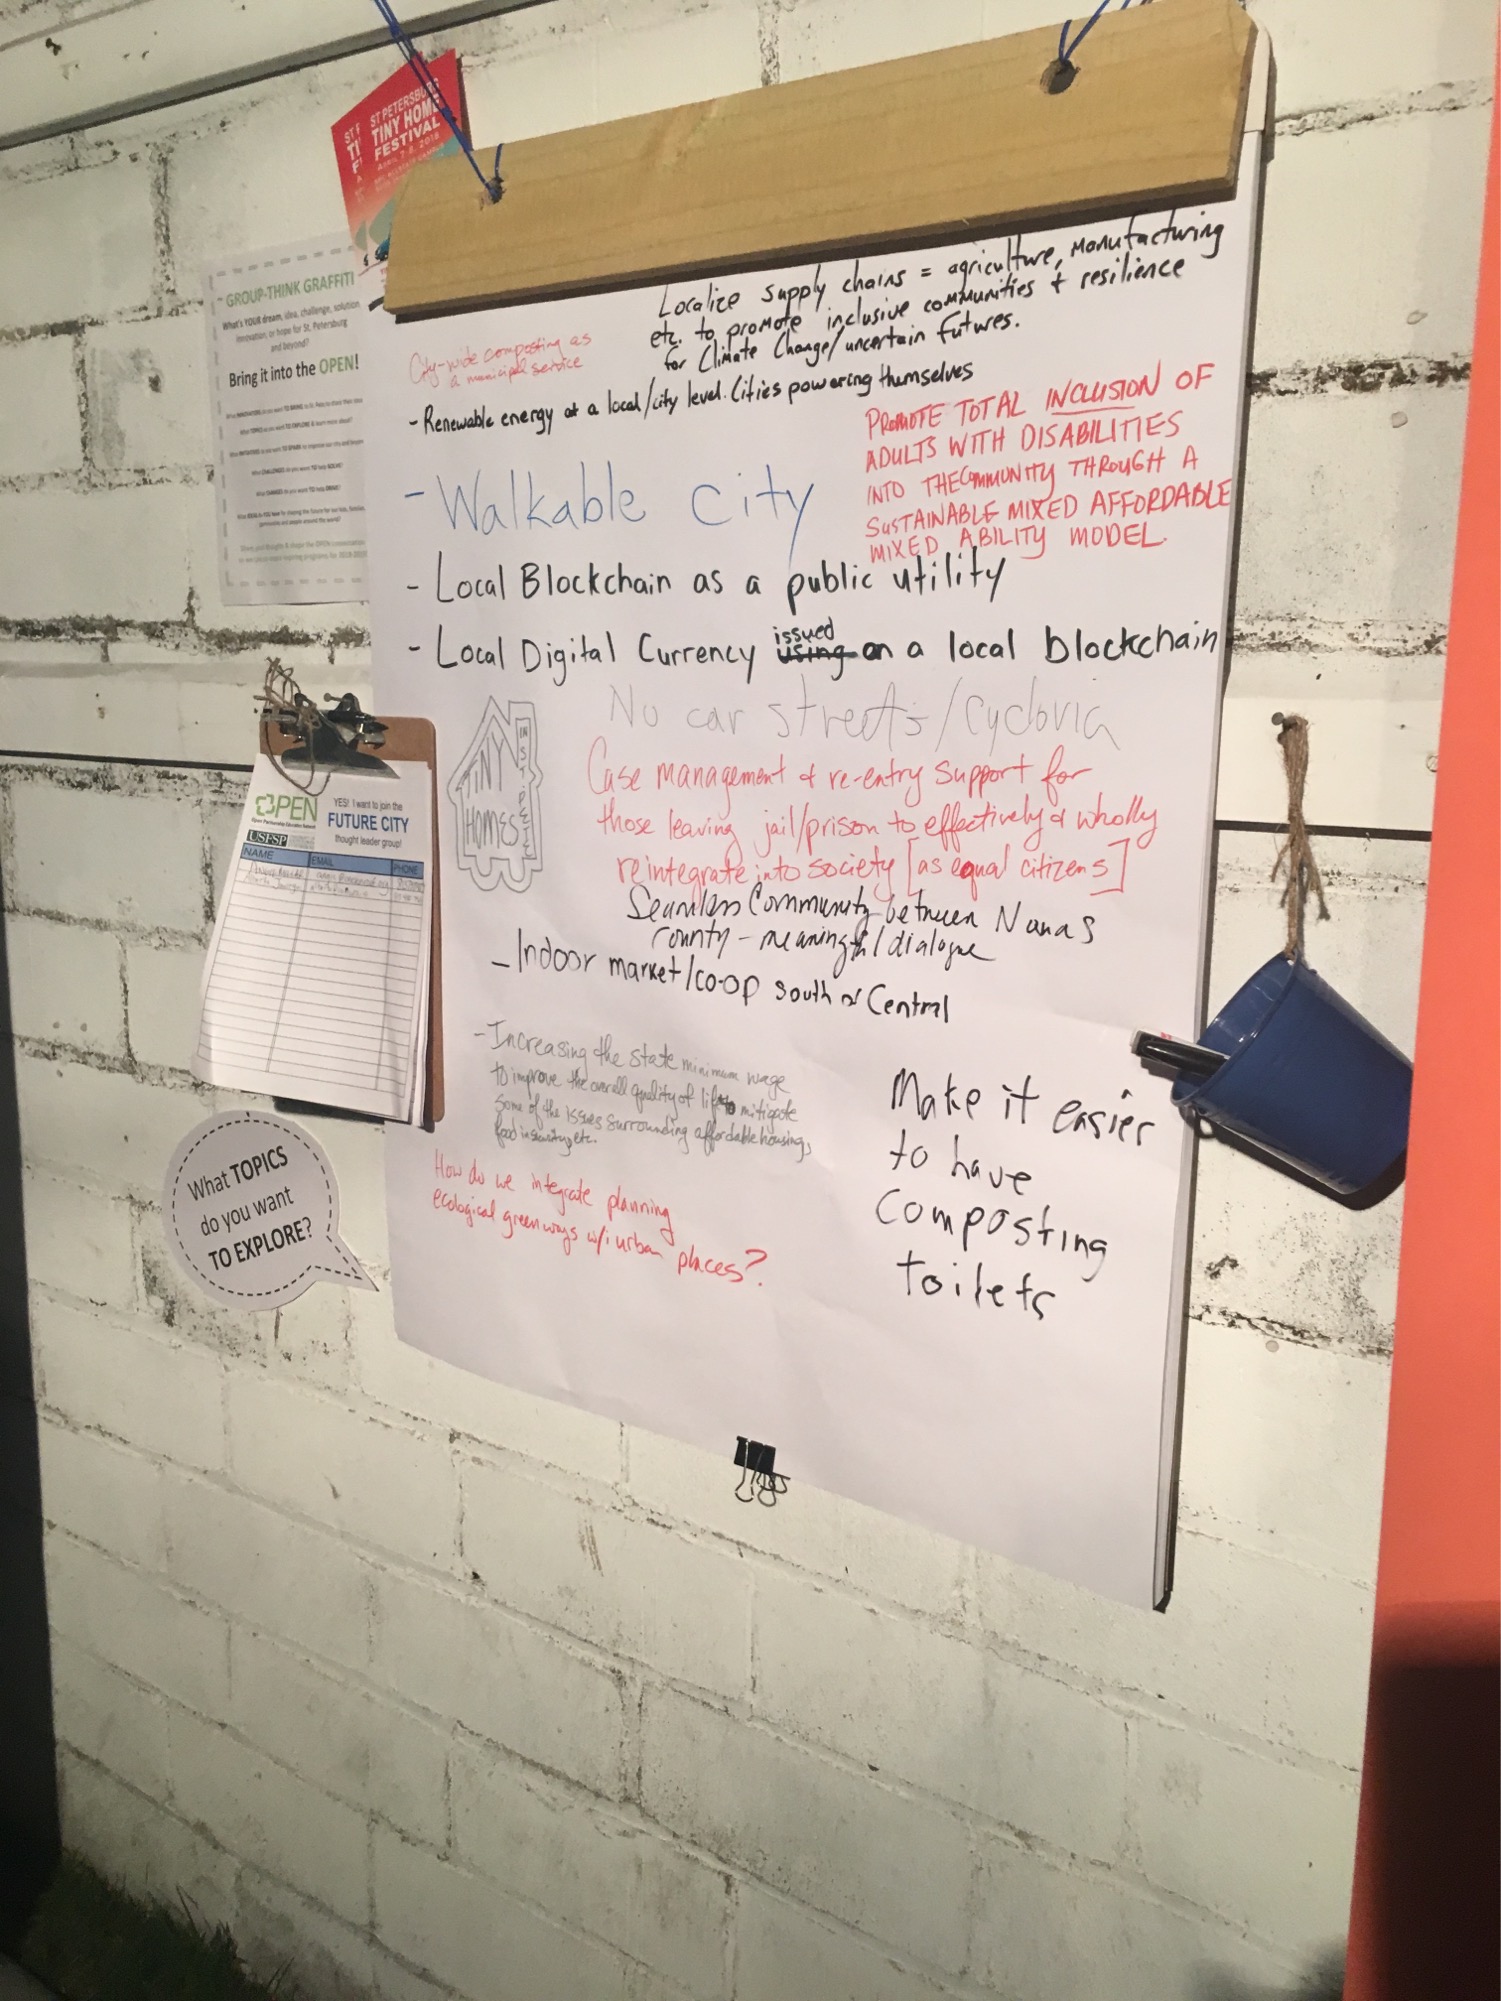 ST PETERSBURG
TINY HOME
FESTIVAL
APRIL 7-8, 2018
GROUP-THINK GRAFFITI
What's YOUR dream, idea, challenge, solution
innovation, or hope for St. Petersburg
and beyond?
Bring it into the OPEN!
Localize supply chains = agriculture, manufacturing
etc. to promote inclusive communities + resilience
for Climate Change/uncertain futures.
City-wide composting as
a municipal service
- Renewable energy at a local/city level. Cities powering themselves
PROMOTE TOTAL INCLUSION OF
ADULTS WITH DISABILITIES
INTO THE COMMUNITY THROUGH A
SUSTAINABLE MIXED AFFORDABLE
MIXED ABILITY MODEL.
- Walkable City
- Local Blockchain as a public utility
- Local Digital Currency issued using on a local blockchain
No car streets/Cyclovia
TINY
HOMES
IN ST.
Case management + re-entry support for
those leaving jail/prison to effectively & wholly
reintegrate into society [as equal citizens]
Seamless Community between N and S
county - meaningful dialogue
- Indoor market/co-op south of Central
- Increasing the state minimum wage
to improve the overall quality of life to mitigate
some of the issues surrounding affordable housing,
food insecurity, etc.
How do we integrate planning
ecological greenways w/i urban places?
Make it easier
to have
composting
toilets
OPEN
YES! I want to join the
FUTURE CITY
thought leader group!
USFSP
NAME EMAIL PHONE
What TOPICS
do you want
TO EXPLORE?